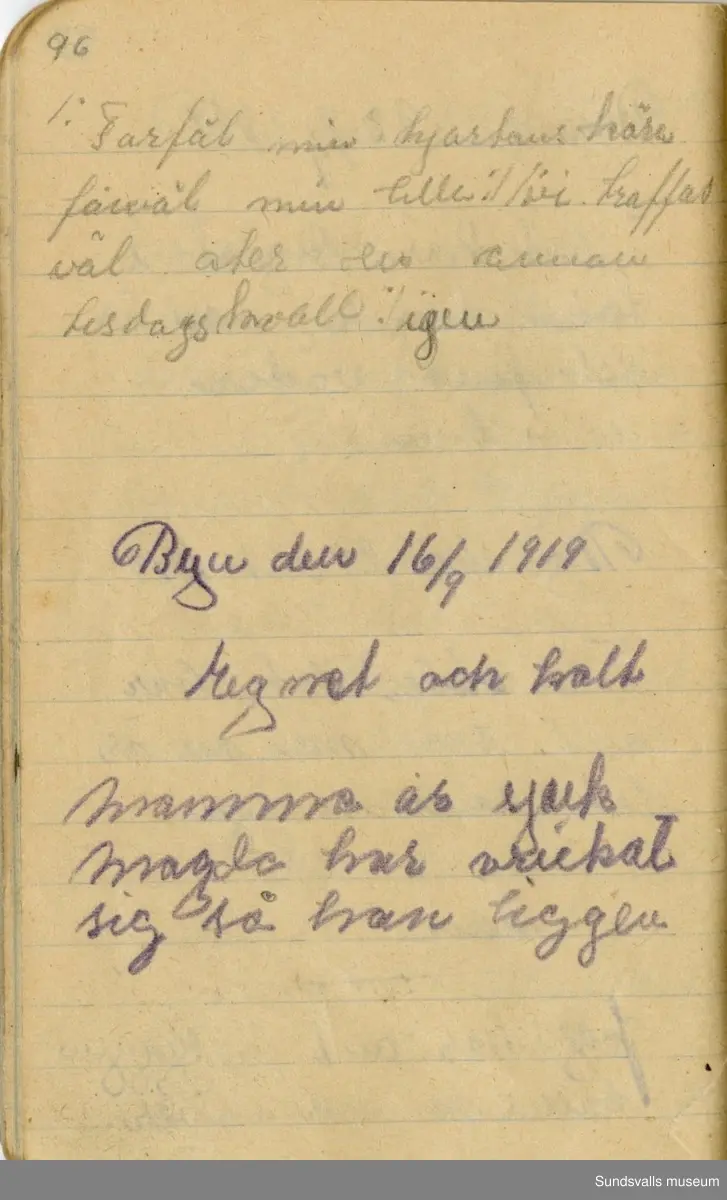 96
1: Farfäl min hjartans kära
färväl min lilla :/ /vi träffas
väl åter en annan
tisdagskväll :/ igen
Byn den 16/9 1919
Regnet och kalt
mamma är sjuk
Magda har vrickat
sig så han ligger
Sundsvalls museum